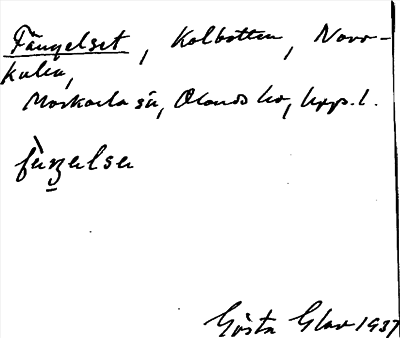 Fängelset, Kolbotten, Norr-
kulla,
Morkarla sn, Olands hd, Upps. l.
fàŋelsə
Gösta Glav 1937